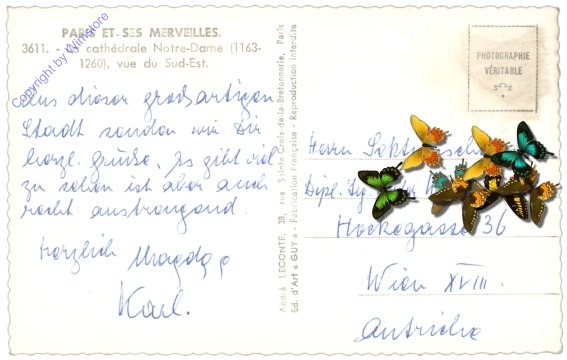 PARIS ET SES MERVEILLES.
3611. - La cathédrale Notre-Dame (1163-
1260), vue du Sud-Est.
Copyright by Winstore
Aus dieser großartigen
Stadt senden wir Dir
herzl. Grüße. Es gibt viel
zu sehen ist aber auch
recht anstrengend.
Herzlich Magda &
Karl.
André LECONTE, 38, rue Sainte-Croix-de-la-Bretonnerie, Paris
Ed. d'Art « GUY » - Fabrication Française - Reproduction interdite
PHOTOGRAPHIE
VÉRITABLE
Herrn
Dipl.
Hockegasse 36
Wien XVIII.
Autriche